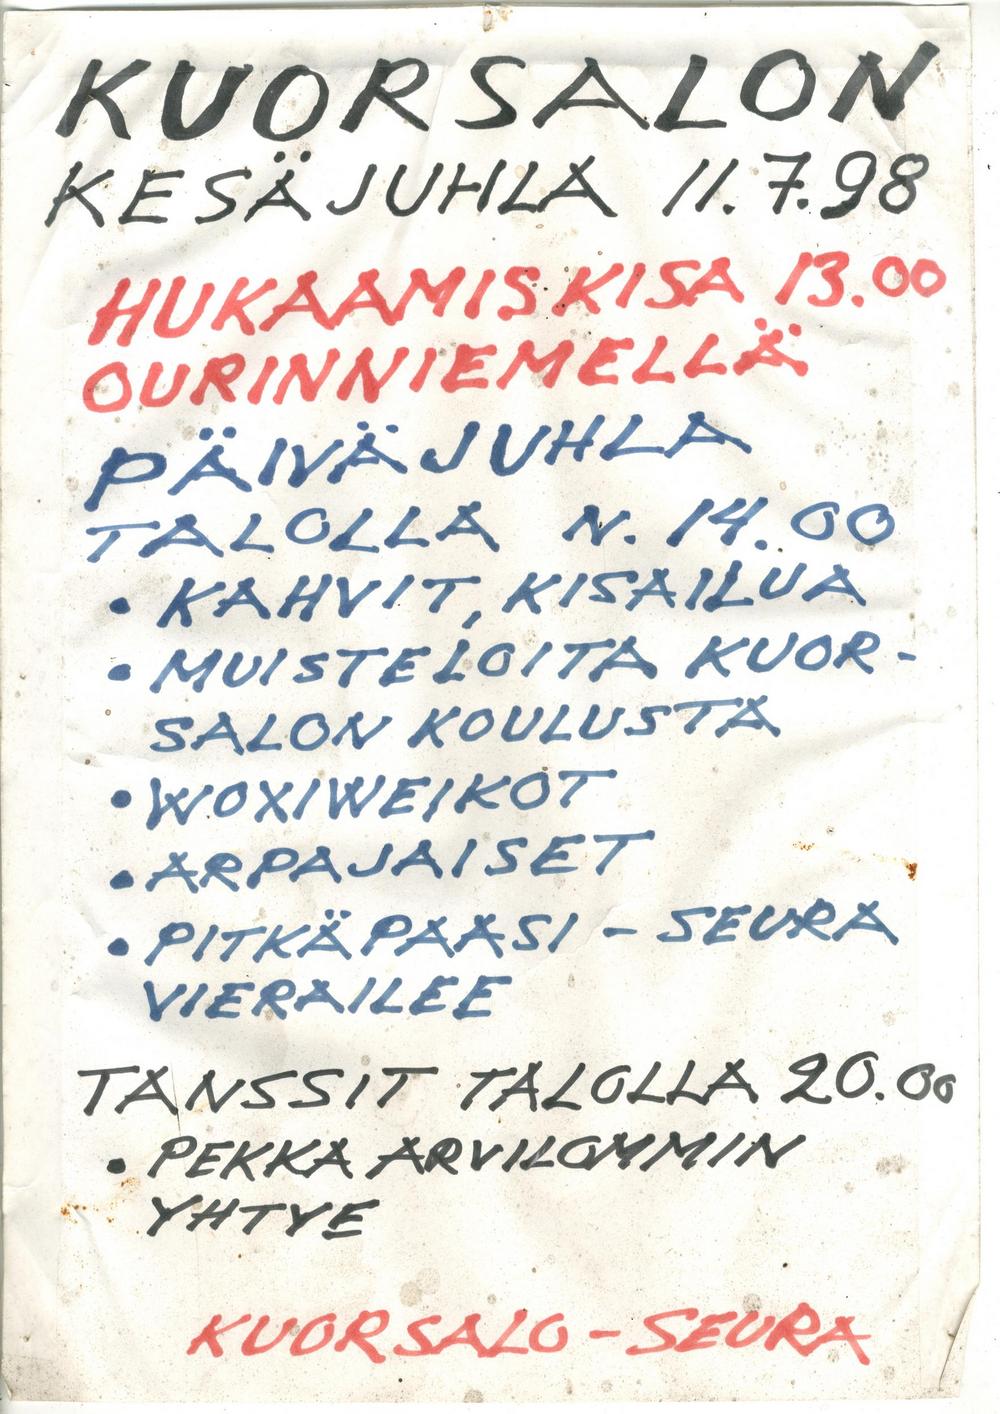 KUORSALON
KESÄJUHLA 11.7.98
HUKAAMISKISA 13.00
OURINNIEMELLÄ
PÄIVÄJUHLA
TALOLLA N. 14.00
• KAHVIT, KISAILUA
• MUISTELOITA KUOR-
SALON KOULUSTA
• WOXIWEIKOT
• ARPAJAISET
• PITKÄPAASI - SEURA
VIERAILEE
TANSSIT TALOLLA 20.00
• PEKKA ARVILOMMIN
YHTYE
KUORSALO - SEURA